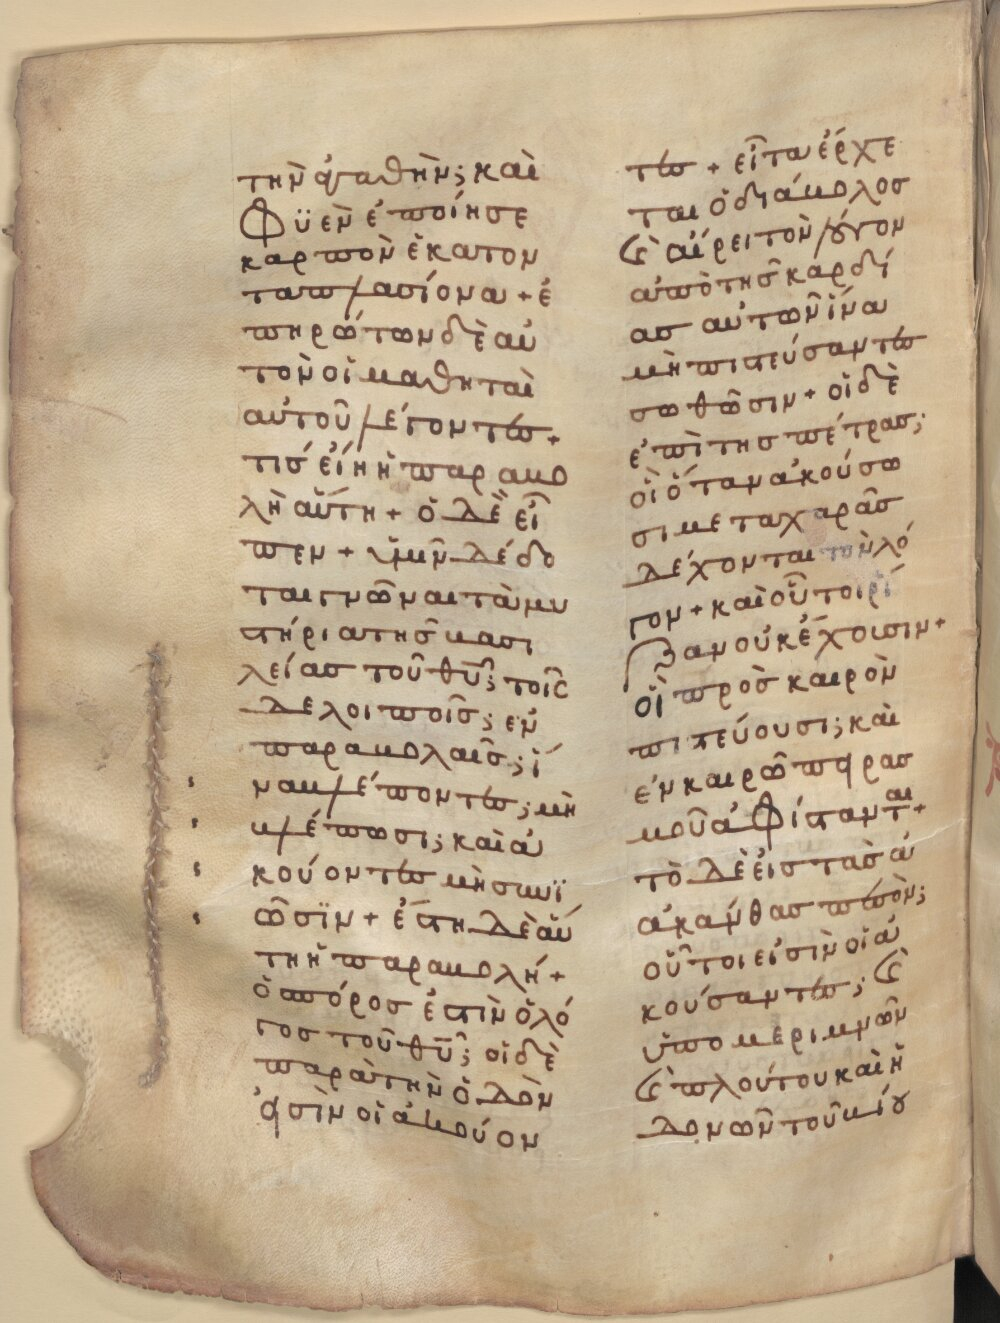 τὴν ἀγαθὴν; καὶ
φϋὲν ἐποίησε
καρπὸν ἑκατον
ταπλασίονα + ἐ
πηρώτων δὲ αὐ
τὸν οἱ μαθηταὶ
αὐτοῦ λέγοντες +
τίς εἴη ἡ παραβο
λὴ αὕτη + ὁ δὲ εἶ
πεν + ὑμῖν δέδο
ται γνῶναι τὰ μυ
στήρια τῆς βασι
λείας τοῦ θῦ; τοῖς
δε λοιποῖς; ἐν
παραβολαῖς; ἵ
να βλέποντες; μὴ
βλέπωσι; καὶ ἀ
κούοντες μὴ συνϊ
ῶσϊν + ἔστη δὲ αὕ
τη ἡ παραβολή +
ὁ σπόρος ἐστὶν ὁ λό
γος τοῦ θῦ; οἱ δὲ
παρὰ τὴν ὁδὸν
εἰσὶν οἱ ἀκούον
τες + εἶτα ἔρχε
ται ὁ διάβολος
καὶ αἴρει τὸν λόγον
ἀπὸ τῆς καρδί
ας αὐτῶν ἵνα
μὴ πιστεύσαντες
σωθῶσιν + οἱ δὲ
ἐπὶ τῆς πέτρας;
οἳ ὅταν ἀκούσω
σι μετα χαρᾶς
δέχονται τὸν λό
γον + καὶ οὗτοι ῥί
ζαν οὐκ ἔχουσιν +
οἳ πρὸς καιρὸν
πιστεύουσι; καὶ
ἐν καιρῶ πειρας
μοῦ ἀφίστανται +
τὸ δὲ εἰς τὰς ἀ
ἀκάνθας πεσὸν;
οὗτοι εἰσὶν οἱ ἀ
κούσαντες; καὶ
ὑπο μεριμνῶν
καὶ πλούτου καὶ ἡ
δονῶν τοῦ βίου